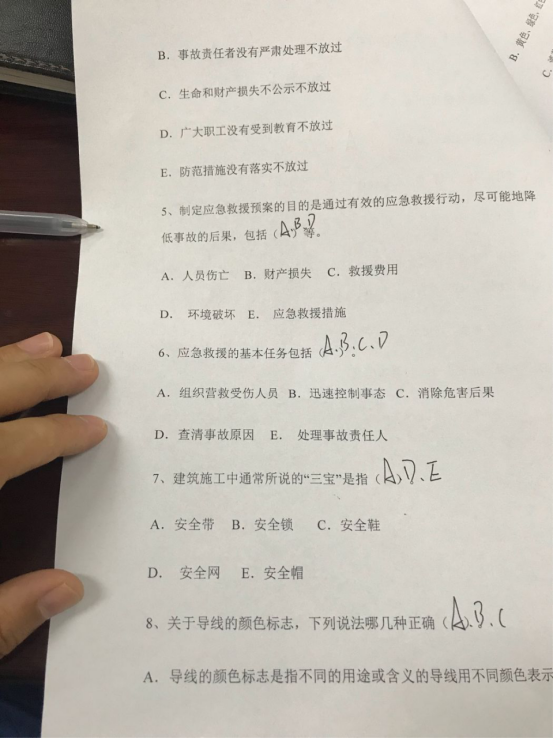 B. 事故责任者没有严肃处理不放过
C. 生命和财产损失不公示不放过
D. 广大职工没有受到教育不放过
E. 防范措施没有落实不放过
5、制定应急救援预案的目的是通过有效的应急救援行动，尽可能地降
低事故的后果，包括（A、B、D）等。
A. 人员伤亡 B. 财产损失 C. 救援费用
D. 环境破坏 E. 应急救援措施
6、应急救援的基本任务包括（A、B、C、D
A. 组织营救受伤人员 B. 迅速控制事态 C. 消除危害后果
D. 查清事故原因 E. 处理事故责任人
7、建筑施工中通常所说的“三宝”是指（A、D、E
A. 安全带 B. 安全锁 C. 安全鞋
D. 安全网 E. 安全帽
8、关于导线的颜色标志，下列说法哪几种正确（A、B、C
A. 导线的颜色标志是指不同的用途或含义的导线用不同颜色表示
B. 黄色、绿色、红
C.